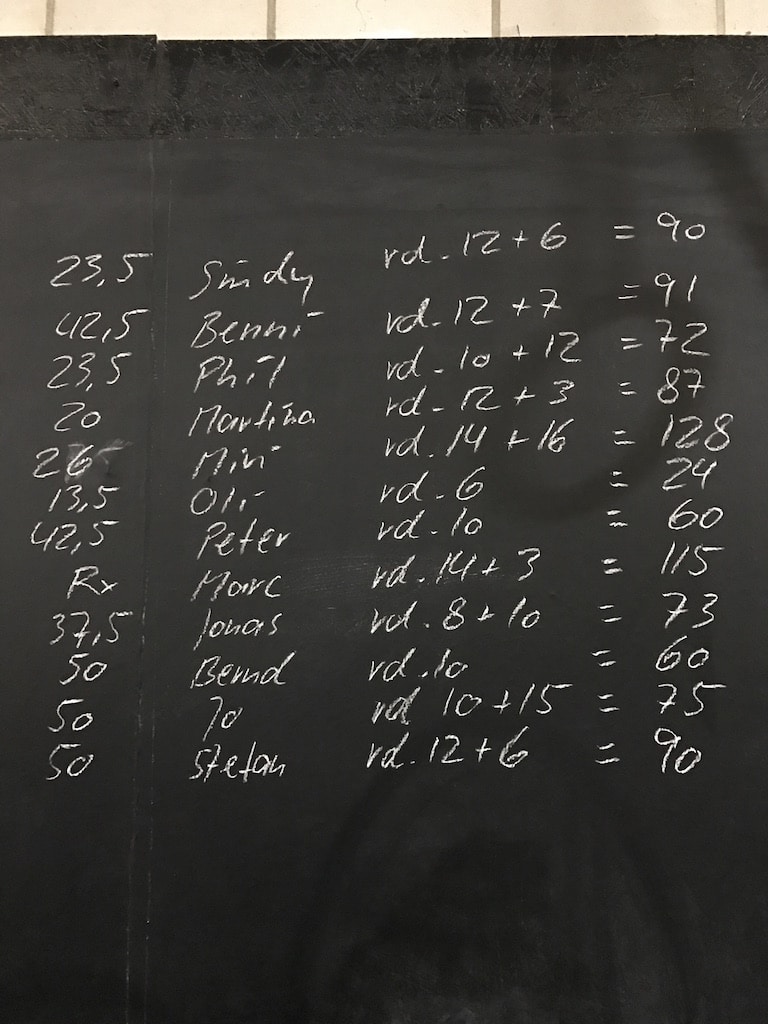 23,5 Sindy rd. 12 + 6 = 90
42,5 Benni rd. 12 + 7 = 91
23,5 Phil rd. 10 + 12 = 72
20 Martina rd. 12 + 3 = 87
26 Miri rd. 14 + 16 = 128
13,5 Oli rd. 6 = 24
42,5 Peter rd. 10 = 60
Rx Marc rd. 14 + 3 = 115
37,5 Jonas rd. 8 + 10 = 73
50 Bernd rd. 10 = 60
50 Jo rd 10 + 15 = 75
50 Stefan rd. 12 + 6 = 90